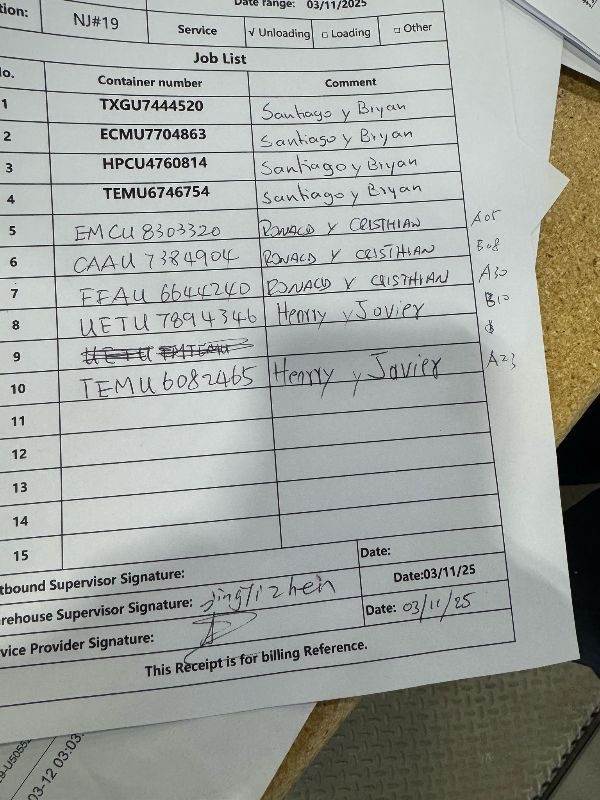 Date range: 03/11/2025
tion: NJ#19 Service √ Unloading □ Loading □ Other
Job List
No. Container number Comment
1 TXGU7444520 Santiago y Bryan
2 ECMU7704863 Santiago y Bryan
3 HPCU4760814 Santiago y Bryan
4 TEMU6746754 Santiago y Bryan
5 EMCU 8303320 RONALD Y CRISTHIAN A05
6 CAAU 7384904 RONALD Y CRISTHIAN E08
7 FFAU 6644240 RONALD Y CRISTHIAN A30
8 UETU 7894346 Henry y Javier B10
9
10 TEMU6082465 Henry y Javier A23
11
12
13
14
15
tbound Supervisor Signature: Date:
rehouse Supervisor Signature: jinglizhen Date:03/11/25
vice Provider Signature: Date: 03/11/25
This Receipt is for billing Reference.
9-U5055
03-12 03:03: